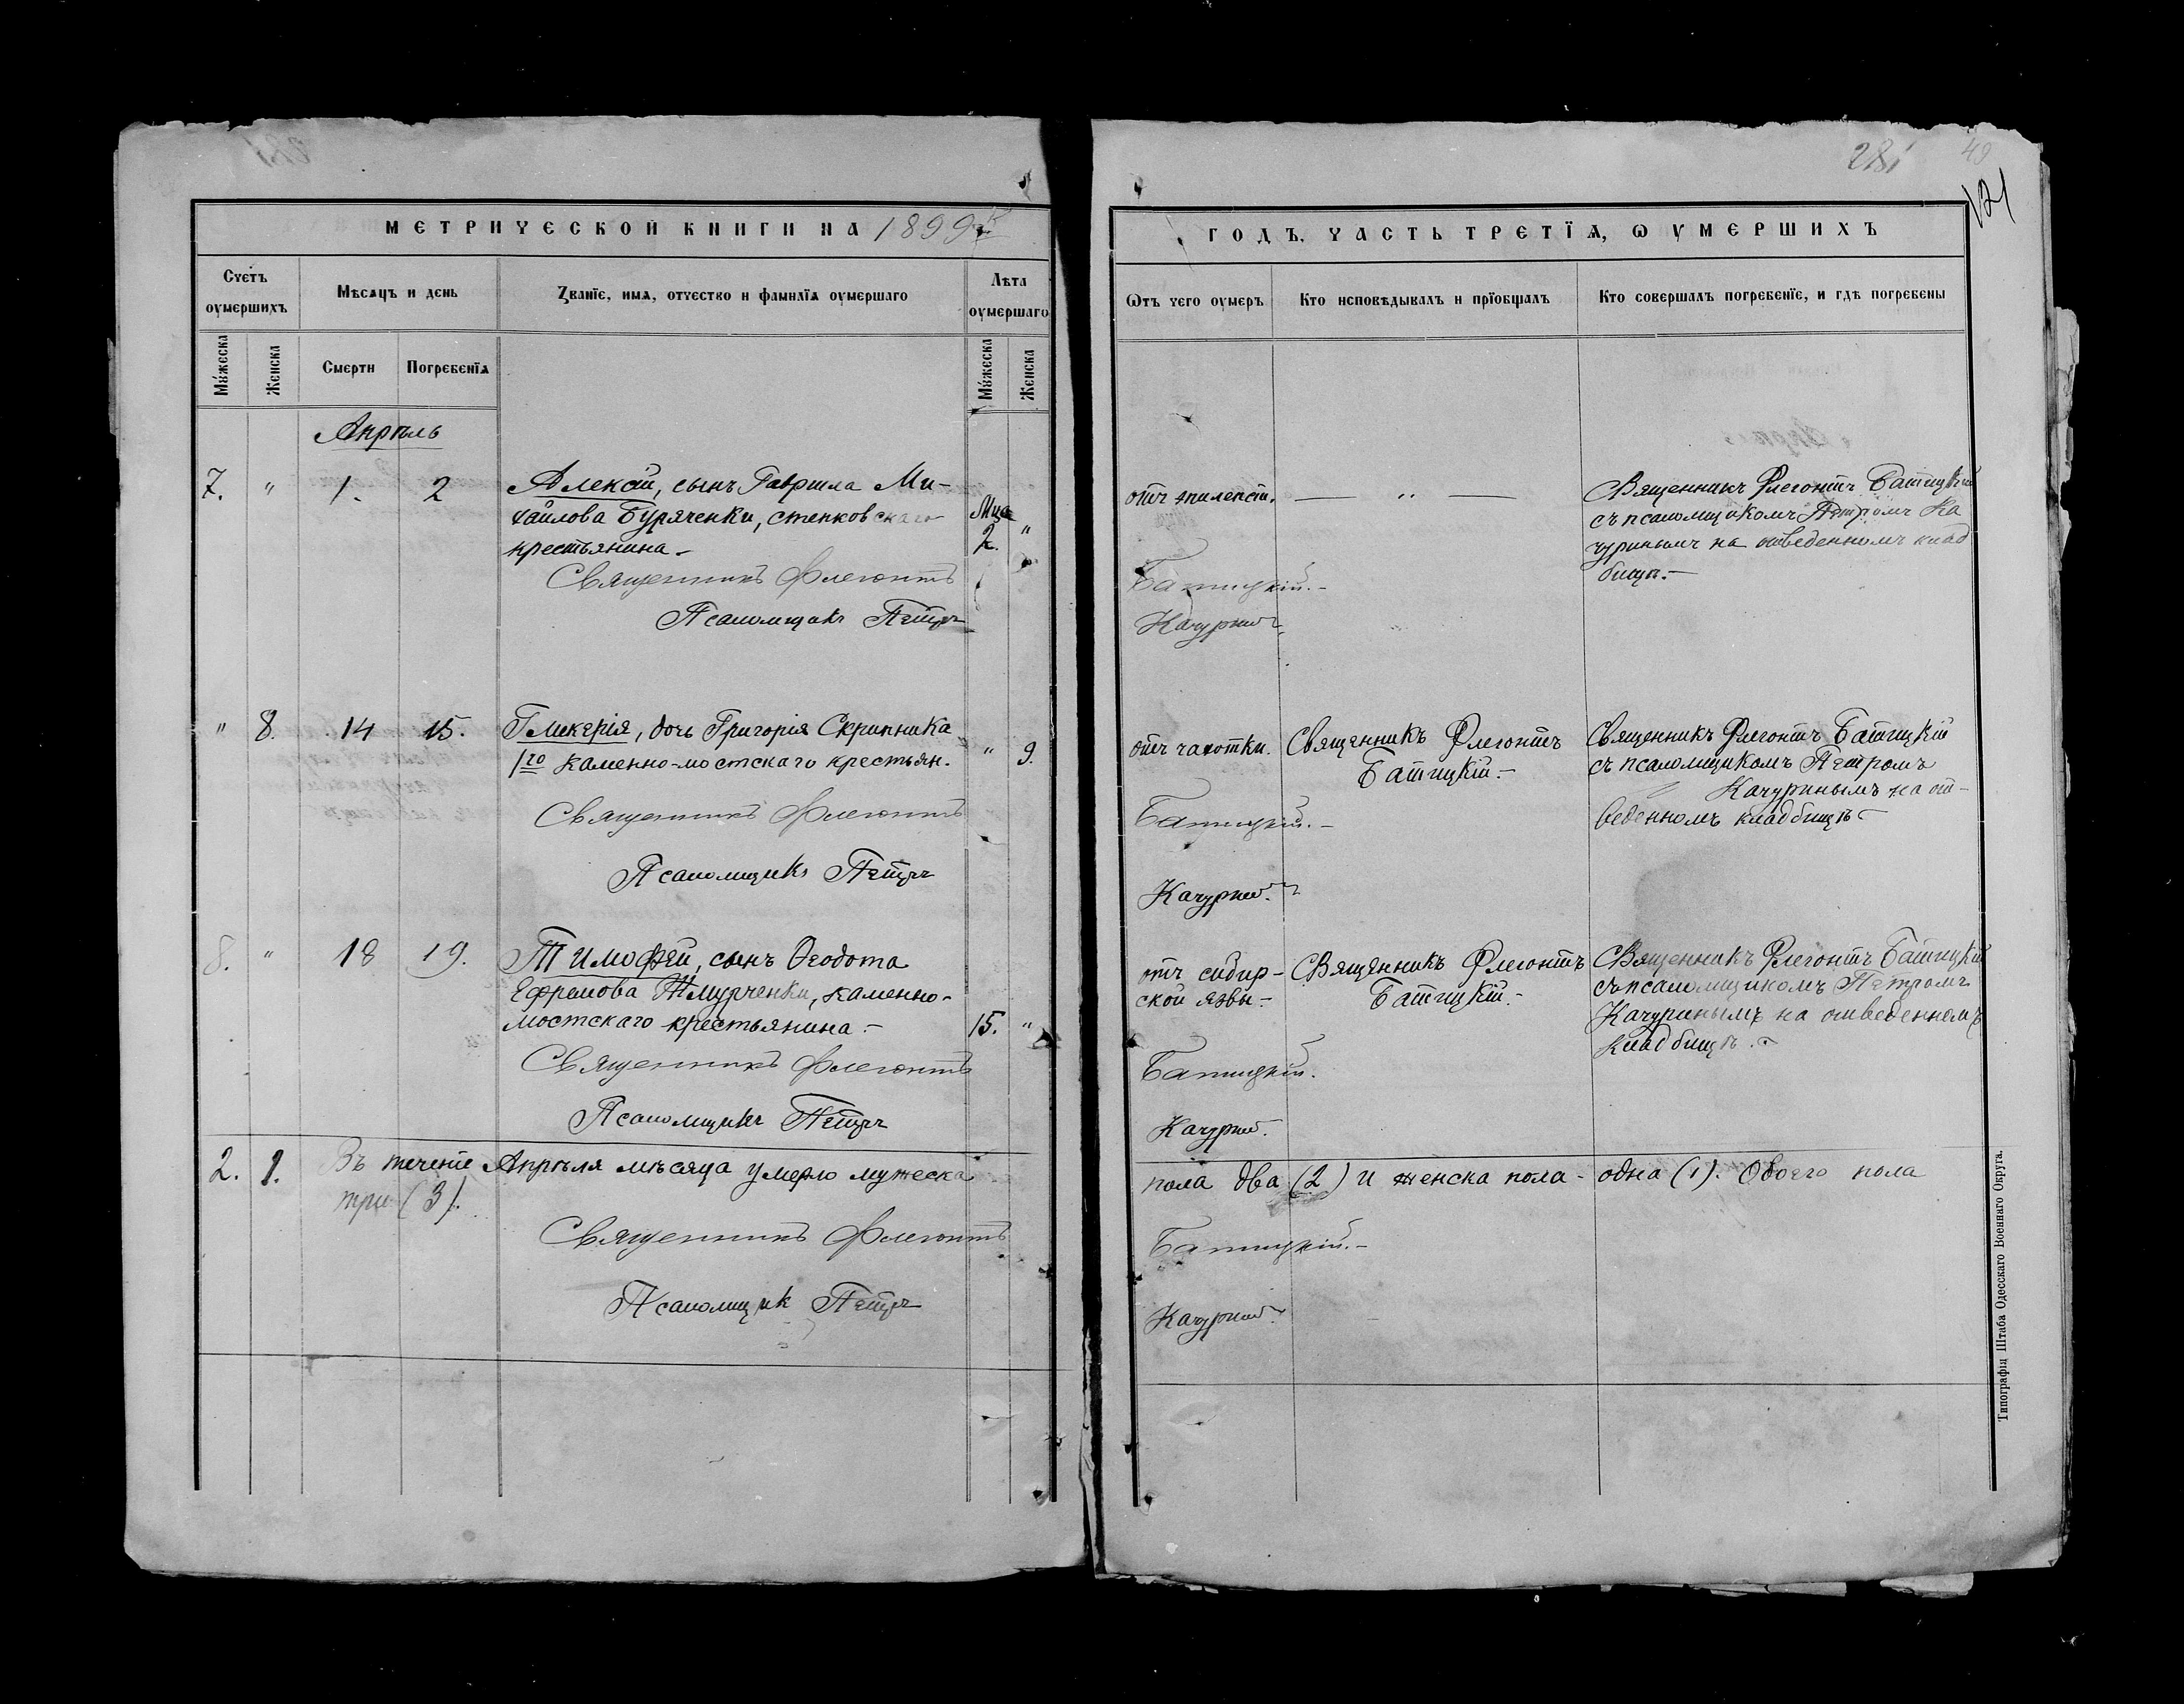 281
49
121
МЕТРИЧЕСКОЙ КНИГИ НА 1899й
ГОДЪ, ЧАСТЬ ТРЕТІЯ, Ѡ УМЕРШИХЪ
Счетъ оумершихъ
Мѣсяцъ и день
Званіе, имя, отчество и фамилія оумершаго
Лѣта оумершаго
Ѿтъ чего оумеръ
Кто исповѣдывалъ и пріобщалъ
Кто совершалъ погребеніе, и гдѣ погребены
Мꙋжеска
Женска
Смерти
Погребенія
Мꙋжеска
Женска
Апрѣль
7. " 1. 2
Алексій, сынъ Гаврила Ми-
хайлова Буряченки, степковскаго
крестьянина.-
Мца
2. "
отъ эпилепсіи.
— " —
Священникъ Флегонтъ Батицкій
съ псаломщикомъ Петромъ Ка
чуринымъ на отведенномъ клад
бищѣ.-
Священникъ Флегонтъ
Батицкій.-
Псаломщикъ Петръ
Качуринъ
" 8. 14 15.
Гликерія, дочь Григорія Скрипника
1го Каменно-мостскаго крестьян.
" 9.
отъ чахотки.
Священникъ Флегонтъ
Батицкій.-
Священникъ Флегонтъ Батицкій
съ псаломщикомъ Петромъ
Качуринымъ на от-
веденномъ кладбищѣ-
Священникъ Флегонтъ
Батицкій.-
Псаломщикъ Петръ
Качуринъ.
8. " 18 19.
Тимофей, сынъ Ѳеодота
Ефремова Жмурченки, каменно-
мостскаго крестьянина.-
15. "
отъ сибир-
ской язвы-
Священникъ Флегонтъ
Батицкій.-
Священникъ Флегонтъ Батицкій
съ псаломщикомъ Петромъ
Качуринымъ на отведенномъ
кладбищѣ.-
Священникъ Флегонтъ
Батицкій.
Псаломщикъ Петръ
Качуринъ.
2. 1. Въ теченіе Апрѣля мѣсяца умерло мужеска
пола два (2) и женска пола - одна (1). Обоего пола
три (3).
Священникъ Флегонтъ
Батицкій.-
Псаломщик Петръ
Качуринъ.
Типографія Штаба Одесскаго Военнаго Округа.